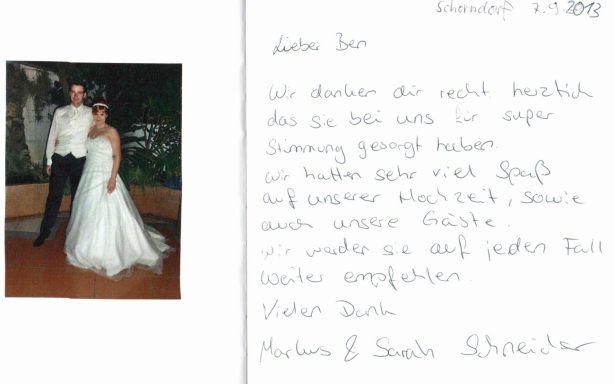 Schorndorf 7.9.2013
Lieber Ben
Wir danken dir recht herzlich
das sie bei uns für super
Stimmung gesorgt haben.
Wir hatten sehr viel Spaß
auf unserer Hochzeit, sowie
auch unsere Gäste.
Wir werden sie auf jeden Fall
weiter empfehlen.
Vielen Dank
Markus & Sarah Schneider